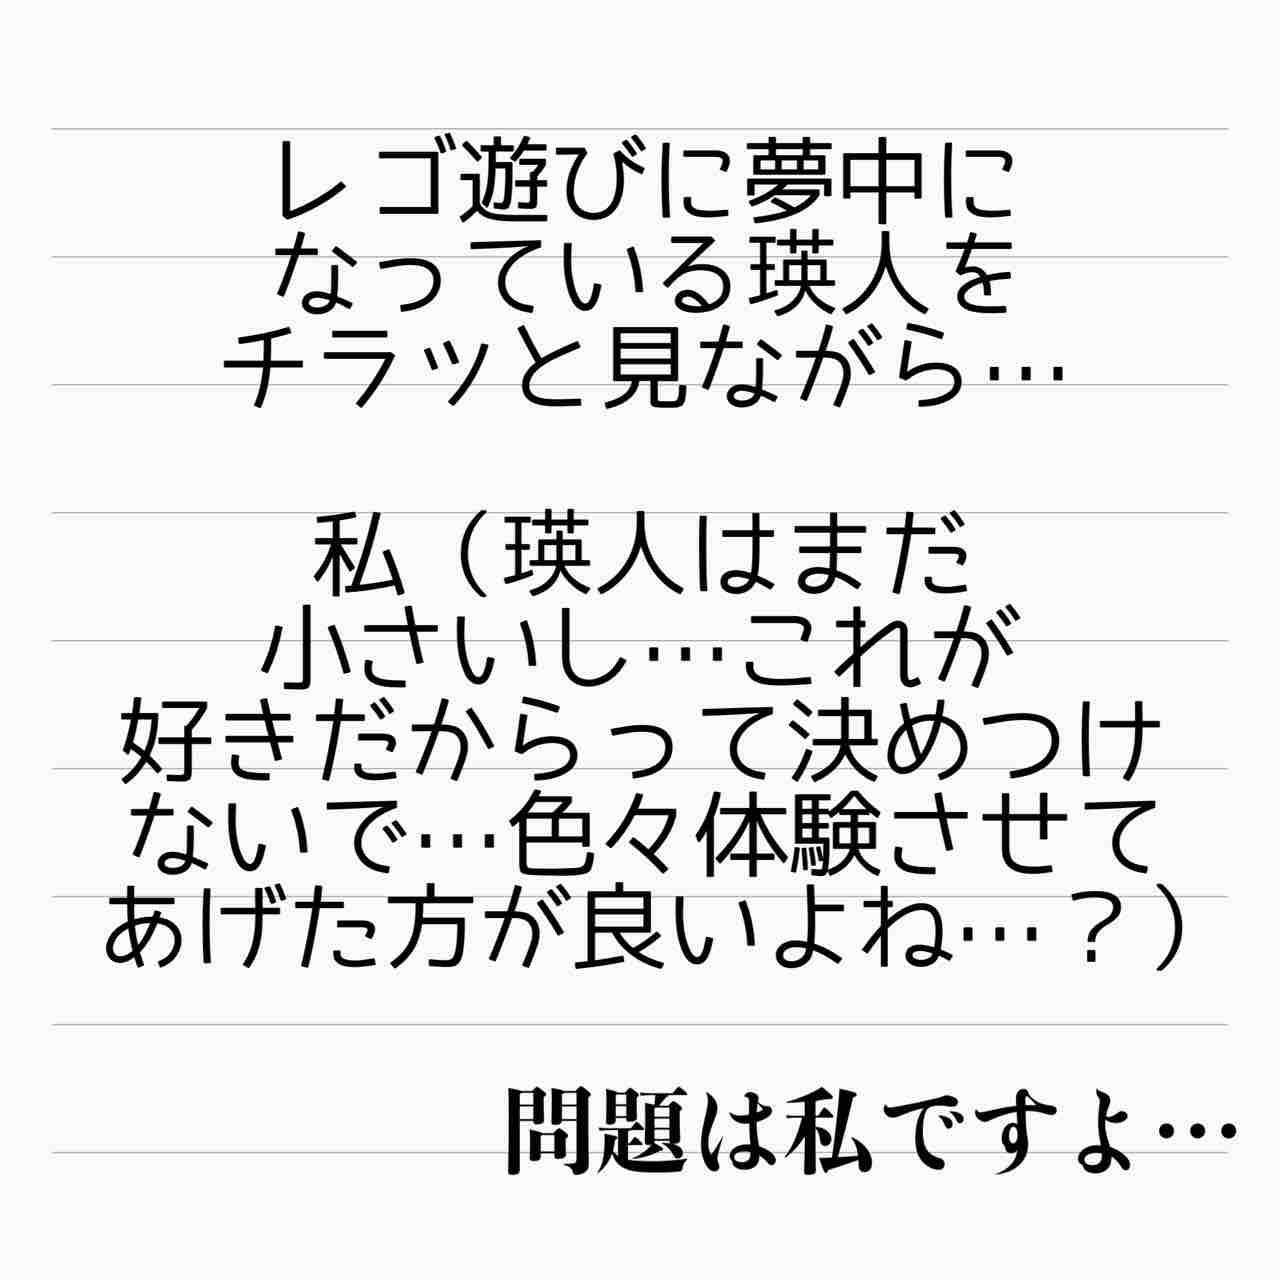 レゴ遊びに夢中に
なっている瑛人を
チラッと見ながら…
私（瑛人はまだ
小さいし…これが
好きだからって決めつけ
ないで…色々体験させて
あげた方が良いよね…？）
問題は私ですよ…